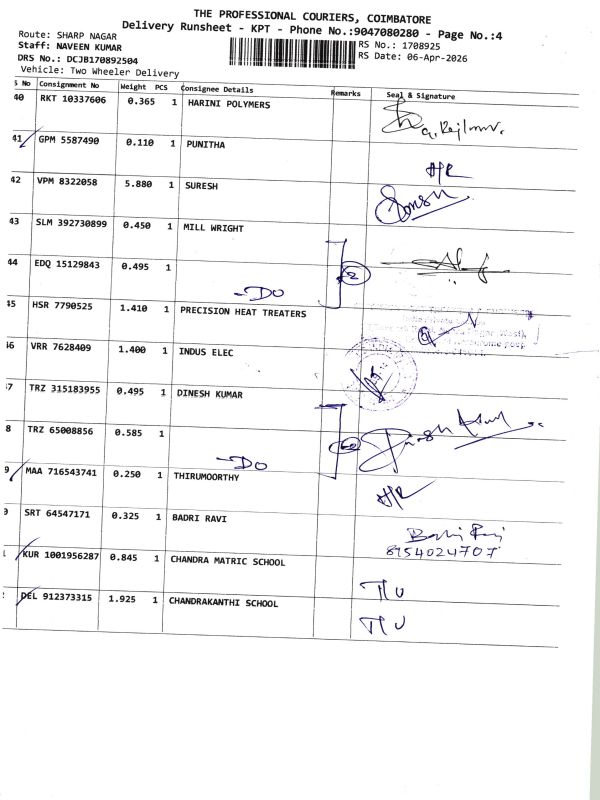 THE PROFESSIONAL COURIERS, COIMBATORE
Delivery Runsheet - KPT - Phone No.:9047080280 - Page No.:4
Route: SHARP NAGAR
Staff: NAVEEN KUMAR
RS No.: 1708925
DRS No.: DCJB170892504
RS Date: 06-Apr-2026
Vehicle: Two Wheeler Delivery
S No Consignment No Weight PCS Consignee Details Remarks Seal & Signature
40 RKT 10337606 0.365 1 HARINI POLYMERS
41 GPM 5587490 0.110 1 PUNITHA H/R
42 VPM 8322058 5.880 1 SURESH
43 SLM 392730899 0.450 1 MILL WRIGHT
44 EDQ 15129843 0.495 1 -DO 2
45 HSR 7790525 1.410 1 PRECISION HEAT TREATERS
46 VRR 7628409 1.400 1 INDUS ELEC
47 TRZ 315183955 0.495 1 DINESH KUMAR
8 TRZ 65008856 0.585 1 -DO
9 MAA 716543741 0.250 1 THIRUMOORTHY H/R
0 SRT 64547171 0.325 1 BADRI RAVI Badri Ravi
8954024707
1 KUR 1001956287 0.845 1 CHANDRA MATRIC SCHOOL
2 DEL 912373315 1.925 1 CHANDRAKANTHI SCHOOL